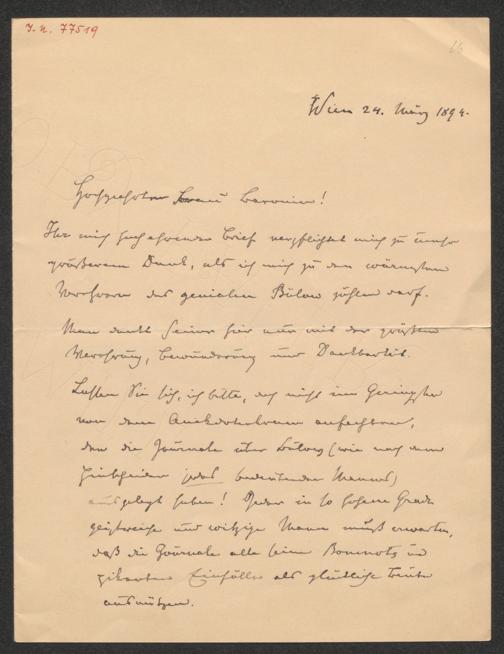 I. N. 77519
16
Wien 24. März 1894.
Hochgeehrte Frau Baronin!
Ihr mich hochehrender Brief verpflichtet mich zu umso
größerem Dank, als ich mich zu den wärmsten
Verehrern des genialen Bülow zählen darf.
Man denkt seiner hier nur mit der größten
Verehrung, Bewunderung und Dankbarkeit.
Lassen Sie sich, ich bitte, doch nicht im Geringsten
von dem anfechten,
den die Journale über Bülow (wie nach dem
Hinscheiden jedes bedeutenden Mannes)
ausgelegt haben! Jeder in so hohem Grade
geistreiche und witzige Mann muß erwarten,
daß die Journale alle seine Bonmots und
pikanten Einfälle als glückliche Beute
ausnützen.